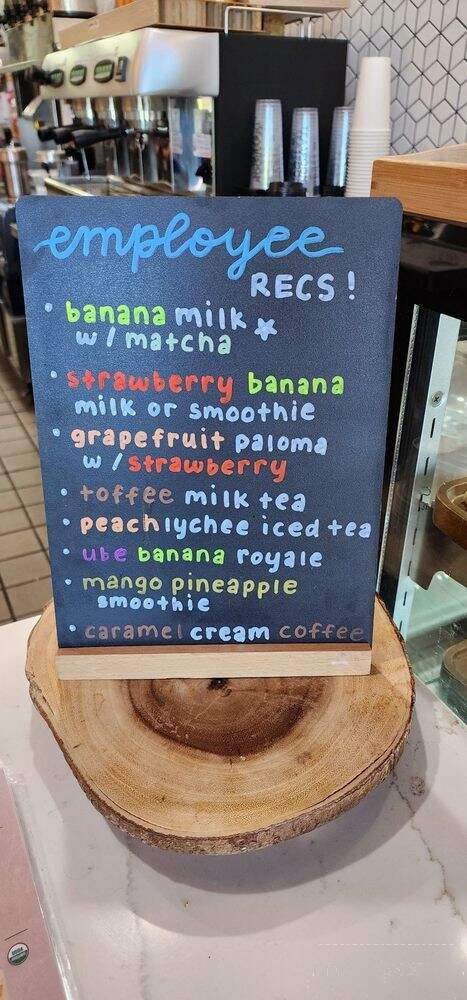 employee
RECS!
• banana milk
w/ matcha
• strawberry banana
milk or smoothie
• grapefruit paloma
w/ strawberry
• toffee milk tea
• peach lychee iced tea
• ube banana royale
• mango pineapple
smoothie
• caramel cream coffee